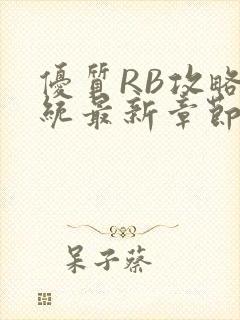 優質RB攻略
統最新章節
呆子蔡